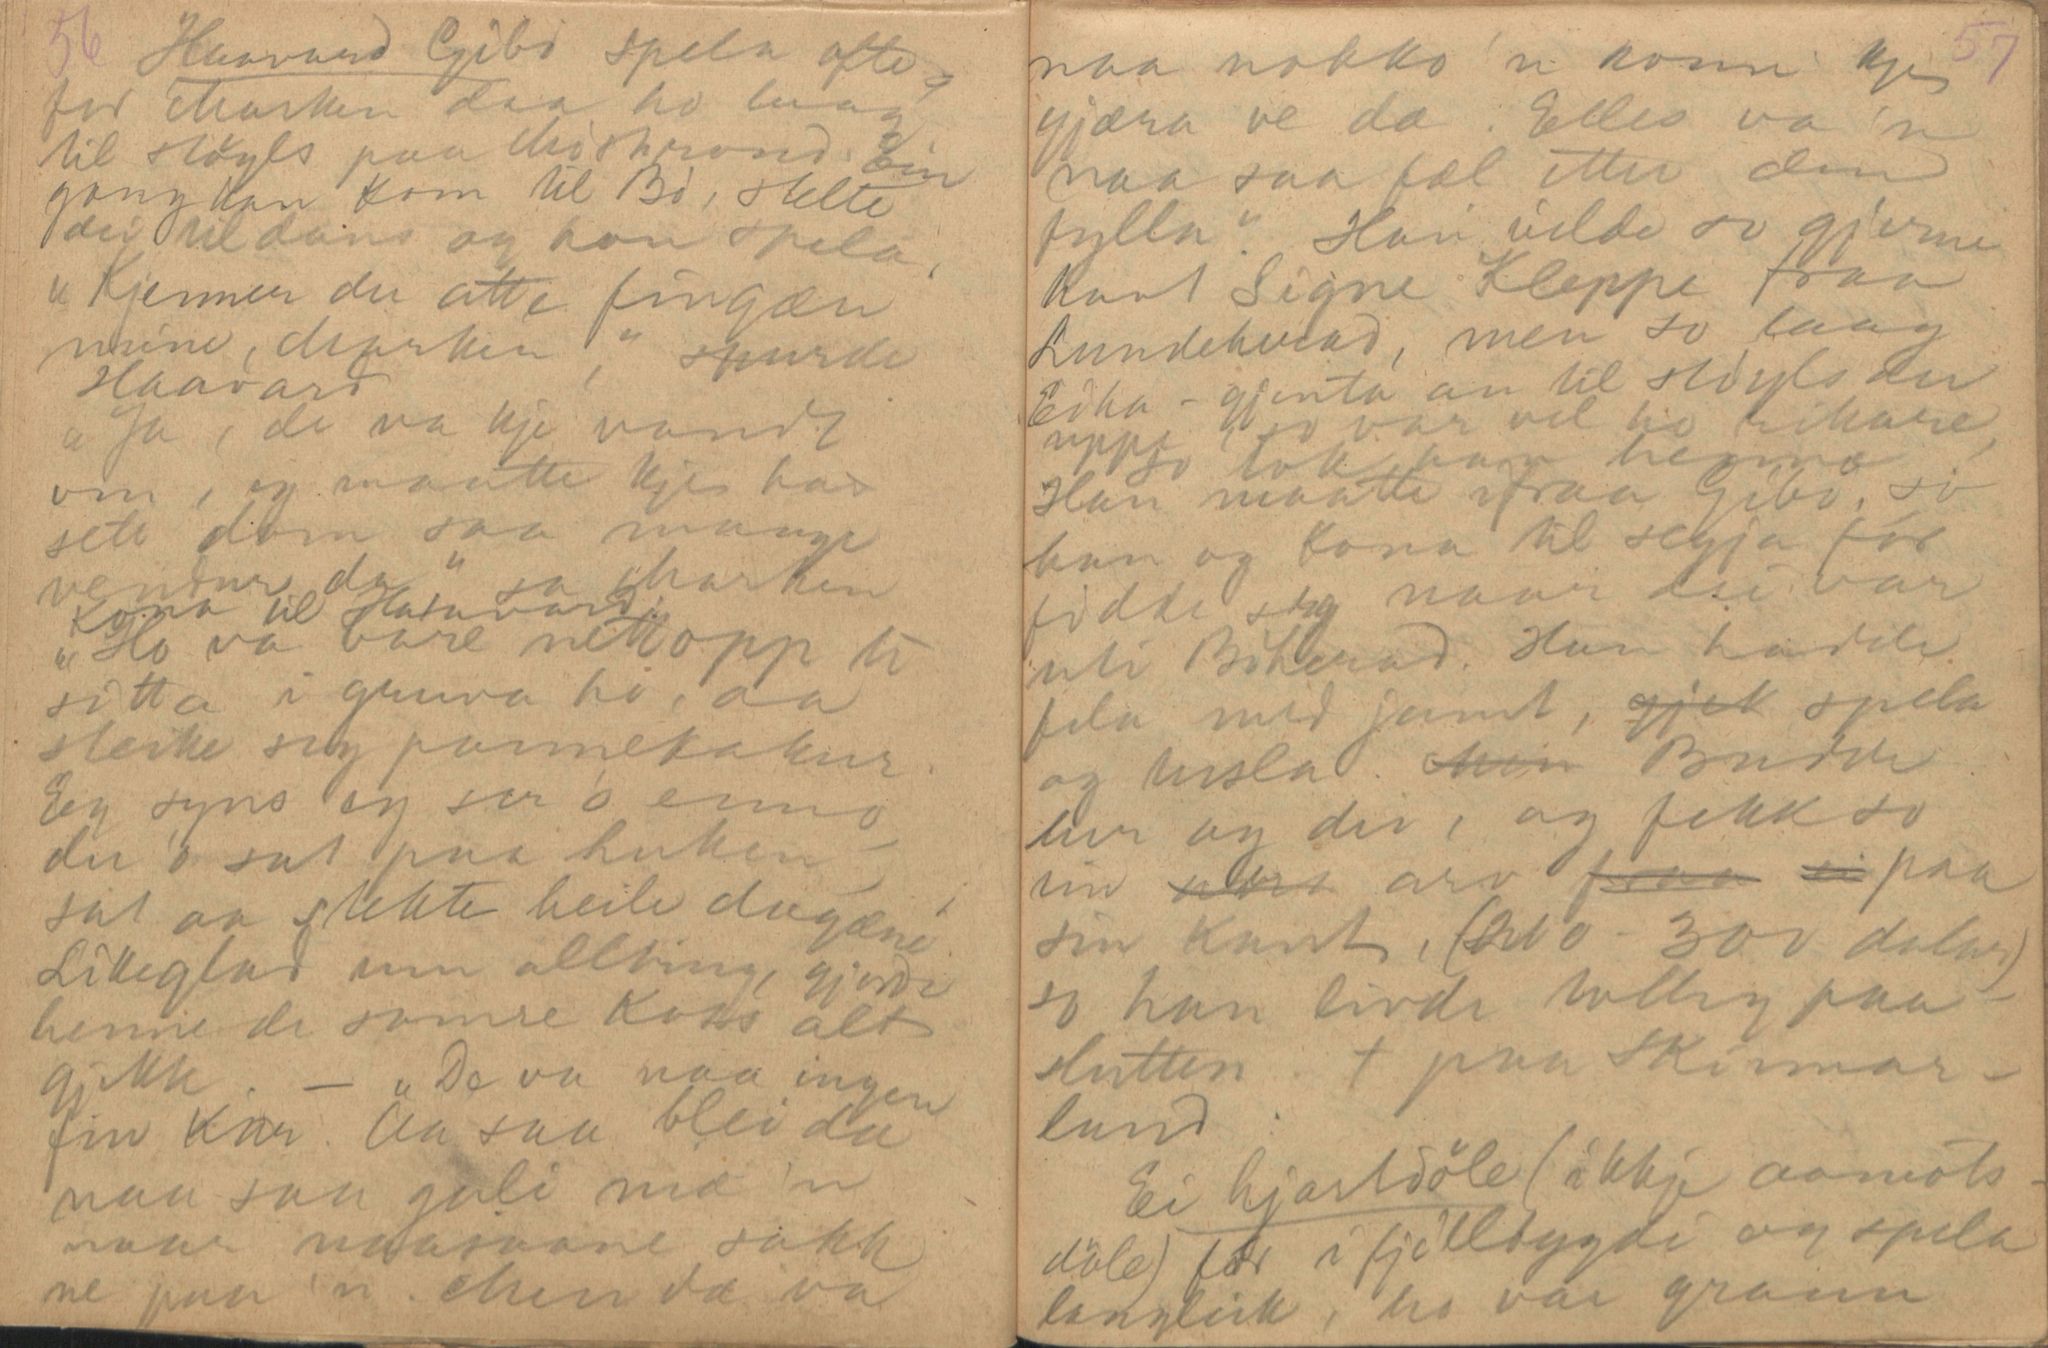 56
Haavard Gibö spela ofte
for Marken daa ho laag
til stöyls paa Mösstrond. Ein
gong han kom til Bö, stelte
dei til dans og han spela,
"Kjenner du atte fingæn
mine, Marken," spurde
Haavard
"Ja, de va kje vandt
om, eg maatte kje ha
sete dom saa mange
vendur da" sa Marken
Kona til Haavard:
"Ho va bare nettopp te
sitta i gruva ho, aa
steike seg pannekakur.
Eg syns eg ser 'o enno
der 'o sat paa huken –
sat aa stekte heile dagæne.
Likeglad um allting, gjorde
henne de somre koss alt
gjekk. – "De va naa ingen
fin kar. Aa saa blei da
naa saa gali mæ 'n
naar naasaane sakk
ne paa 'n. Men dæ va
57
naa nokko 'n konne kje
gjæra ve da. Elles va 'n
naa saa fæl etter den
fylla". Han vilde so gjerne
havt Signe Kleppe fraa
Lundeherad, men so laag
Edka-gjenta an til stöyls der
uppe, so var vel ho rikare,
so tok han henne
Han maatte ifraa Gibö, so
han og kona til segja för
födde seg naar dei var
uti Böherad. Han hadde
fela med jamt, gjek spela
og tusla. Min Budde
her og der, og fekk so
ein arv fraa paa
sin kant, (200 - 300 dalar)
so han livde tolleg paa
slutten. † paa Skirnar-
lund.
Ei hjartdöle (ikkje aamots-
döle) for i fjellbygdi og spela
langleik, ho var grann